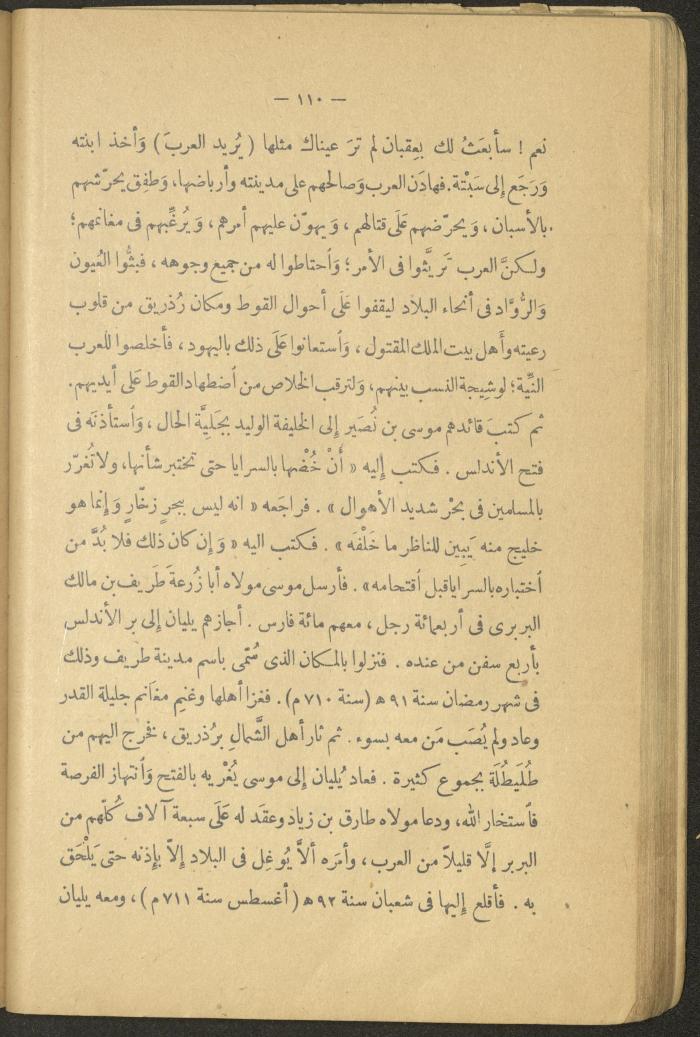 — ١١٠ —
نعم ! سأبعَثُ لك بعِقبان لم ترَ عيناك مثلها ( يُريد العربَ ) وَأخذ ابنته
وَرَجَع إلى سَبْتَة. فهادَن العرب وَصالحهم على مدينته وأرباضها، وَطفِق يحرّشهم
بالأسبان ، وَيحرّضهم عَلَى قتالهم ، وَيهوّن عليهم أمرهم ، وَيُرغِّبهم فى مغانمهم ؛
ولكنَّ العرب تَريَّثوا فى الأمر ؛ وَاُحتاطوا له من جميع وجوهه ، فبثُّوا العُيون
وَالرُّوَّاد فى أنحاء البلاد ليقفوا عَلَى أحوال القوط ومكان رُذريق من قلوب
رعيته وأَهل بيت الملك المقتول ، وَاُستعانوا عَلَى ذلك باليهود ، فأخلصوا للعرب
النِّية ؛ لوشِيجة النسب بينهم، وَلترقب الخلاص من اُضطهاد القوط عَلَى أيديهم.
ثم كتبَ قائدهم موسى بن نُصَير إلى الخليفة الوليد بجَلِيَّة الحال ، وَاُستأذنَه فى
فتح الأندلس . فكتب إِليه « أَنْ خُضْها بالسرايا حتى تختبر شأنها، ولا تُغرّر
بالمسلمين فى بحْر شديد الأهوال » . فراجَعه « انه ليس ببحرٍ زخّارٍ وَإِنما هو
خليج منه يَبِين للناظر ما خَلْفَه » . فكتب اليه « وَإِن كان ذلك فلا بُدَّ من
اُختباره بالسرايا قبل اُقتحامه» . فأرسل موسى مولاه أبا زُرعةَ طَريف بن مالك
البربرى فى أربعمائة رجل ، معهم مائة فارس . أجازهم يليان إلى بر الأندلس
بأربع سفن من عنده . فنزلوا بالمكان الذى سُمّى باسم مدينة طريف وذلك
فى شهر رمضان سنة ٩١ ھ (سنة ٧١٠ م) . فغزا أهلها وغنِم مغَانم جليلة القدر
وعاد ولم يُصَب مَن معه بسوء . ثم ثار أهل الشَّمالِ برُذريق ، فخرج اليهم من
طُلَيطُلَة بجموع كثيرة . فعاد يُليان إلى موسى يُغْريه بالفتح وَاُنتهاز الفرصة
فاُستخار الله، ودعا مولاه طارق بن زياد وعقَد له عَلَى سبعة آلاف كُلّهم من
البربر إلَّا قليلاً من العرب ، وأمَره ألاَّ يُوغِل فى البلاد إلاّ بإذنه حتى يَلْحَق
به . فأقلع إليها فى شعبان سنة ٩٢ ھ ( أغسطس سنة ٧١١ م ) ، ومعه يليان